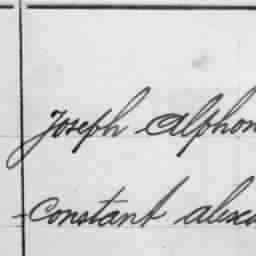 Joseph Alphon
Constant alexa